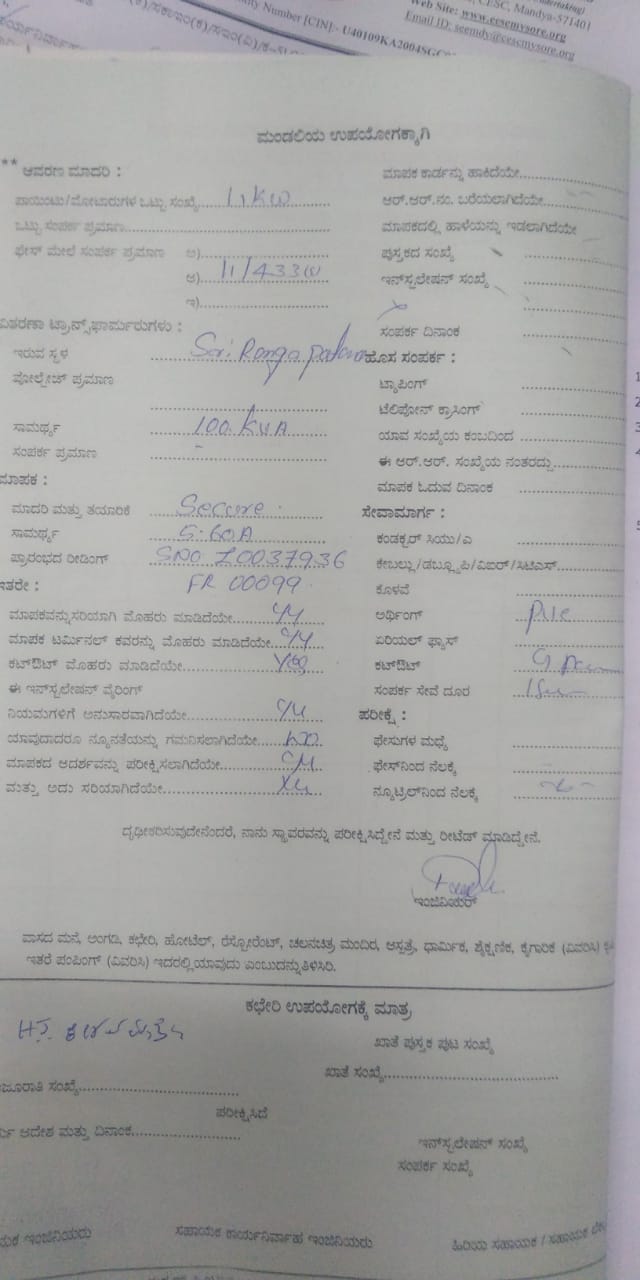 Number [CIN]:- U40109KA2004SGC
CESC, Mandya-571401
Web Site: www.cescmysore.org
Email ID: seemdy@cescmysore.org
ಮಂಡಲಿಯ ಉಪಯೋಗಕ್ಕಾಗಿ
** ಆವರಣ ಮಾದರಿ :
ಪಾಯಿಂಟು/ಮೋಟಾರುಗಳ ಒಟ್ಟು ಸಂಖ್ಯೆ..... 11 KW
ಒಟ್ಟು ಸಂಪರ್ಕ ಪ್ರಮಾಣ
ಫೇಸ್ ಮೇಲೆ ಸಂಪರ್ಕ ಪ್ರಮಾಣ ಅ)
ಆ) 11/433
ಇ)
ವಿತರಣಾ ಟ್ರಾನ್ಸ್‌ಫಾರ್ಮರುಗಳು :
ಇರುವ ಸ್ಥಳ Sri Ranga
ವೋಲ್ಟೇಜ್ ಪ್ರಮಾಣ
ಸಾಮರ್ಥ್ಯ 100 KVA
ಸಂಪರ್ಕ ಪ್ರಮಾಣ -
ಮಾಪಕ :
ಮಾದರಿ ಮತ್ತು ತಯಾರಿಕೆ Secure
ಸಾಮರ್ಥ್ಯ 5-60A
ಪ್ರಾರಂಭದ ರೀಡಿಂಗ್ SNO Z0037936
ಇತರೇ : FR 00099
ಮಾಪಕವನ್ನುಸರಿಯಾಗಿ ಮೊಹರು ಮಾಡಿದೆಯೇ
ಮಾಪಕ ಟರ್ಮಿನಲ್ ಕವರನ್ನು ಮೊಹರು ಮಾಡಿದೆಯೇ
ಕಟ್‌ಔಟ್ ಮೊಹರು ಮಾಡಿದೆಯೇ..... Yes
ಈ ಇನ್‌ಸ್ಟಲೇಷನ್ ವೈರಿಂಗ್
ನಿಯಮಗಳಿಗೆ ಅನುಸಾರವಾಗಿದೆಯೇ
ಯಾವುದಾದರೂ ನ್ಯೂನತೆಯನ್ನು ಗಮನಿಸಲಾಗಿದೆಯೇ..... NO
ಮಾಪಕದ ಆದರ್ಶವನ್ನು ಪರೀಕ್ಷಿಸಲಾಗಿದೆಯೇ
ಮತ್ತು ಅದು ಸರಿಯಾಗಿದೆಯೇ
ಮಾಪಕ ಕಾರ್ಡನ್ನು ಹಾಕಿದೆಯೇ
ಆರ್.ಆರ್.ನಂ. ಬರೆಯಲಾಗಿದೆಯೇ
ಮಾಪಕದಲ್ಲಿ ಹಾಳೆಯನ್ನು ಇಡಲಾಗಿದೆಯೇ
ಪುಸ್ತಕದ ಸಂಖ್ಯೆ
ಇನ್‌ಸ್ಟಲೇಷನ್ ಸಂಖ್ಯೆ
ಸಂಪರ್ಕ ದಿನಾಂಕ
ಹೊಸ ಸಂಪರ್ಕ :
ಟ್ಯಾಪಿಂಗ್
ಟೆಲಿಫೋನ್ ಕ್ರಾಸಿಂಗ್
ಯಾವ ಸಂಖ್ಯೆಯ ಕಂಬದಿಂದ
ಈ ಆರ್.ಆರ್. ಸಂಖ್ಯೆಯ ನಂತರದ್ದು
ಮಾಪಕ ಓದುವ ದಿನಾಂಕ
ಸೇವಾಮಾರ್ಗ :
ಕಂಡಕ್ಟರ್ ಸಿಯು/ಎ
ಕೇಬಲ್ಲು/ಡಬ್ಲ್ಯೂಪಿ/ವಿಐರ್/ಸಿಟಿಎಸ್
ಕೊಳವೆ
ಅರ್ಥಿಂಗ್
ಏರಿಯಲ್ ಫ್ಯೂಸ್
ಕಟ್‌ಔಟ್
ಸಂಪರ್ಕ ಸೇವೆ ದೂರ
ಪರೀಕ್ಷೆ :
ಫೇಸುಗಳ ಮಧ್ಯೆ
ಫೇಸ್‌ನಿಂದ ನೆಲಕ್ಕೆ
ನ್ಯೂಟ್ರಲ್‌ನಿಂದ ನೆಲಕ್ಕೆ
ದೃಢೀಕರಿಸುವುದೇನೆಂದರೆ, ನಾನು ಸ್ಥಾವರವನ್ನು ಪರೀಕ್ಷಿಸಿದ್ದೇನೆ ಮತ್ತು ರೀಟೆಡ್ ಮಾಡಿದ್ದೇನೆ.
ಇಂಜಿನಿಯರ್
ವಾಸದ ಮನೆ, ಅಂಗಡಿ, ಕಛೇರಿ, ಹೋಟೆಲ್, ರೆಸ್ಟೋರೆಂಟ್, ಚಲನಚಿತ್ರ ಮಂದಿರ, ಆಸ್ಪತ್ರೆ, ಧಾರ್ಮಿಕ, ಶೈಕ್ಷಣಿಕ, ಕೈಗಾರಿಕೆ (ವಿವರಿಸಿ)
ಇತರೆ ಪಂಪಿಂಗ್ (ವಿವರಿಸಿ) ಇದರಲ್ಲಿ ಯಾವುದು ಎಂಬುದನ್ನು ತಿಳಿಸಿರಿ.
ಕಛೇರಿ ಉಪಯೋಗಕ್ಕೆ ಮಾತ್ರ
ಖಾತೆ ಪುಸ್ತಕ ಪುಟ ಸಂಖ್ಯೆ
ಖಾತೆ ಸಂಖ್ಯೆ
ಜೂರಾತಿ ಸಂಖ್ಯೆ
ಪರೀಕ್ಷಿಸಿದೆ
ಆದೇಶ ಮತ್ತು ದಿನಾಂಕ
ಇನ್‌ಸ್ಟಲೇಷನ್ ಸಂಖ್ಯೆ
ಸಂಪರ್ಕ ಸಂಖ್ಯೆ
ಇಂಜಿನಿಯರು
ಸಹಾಯಕ ಕಾರ್ಯನಿರ್ವಾಹಕ ಇಂಜಿನಿಯರು
ಹಿರಿಯ ಸಹಾಯಕ / ಸಹಾಯಕ